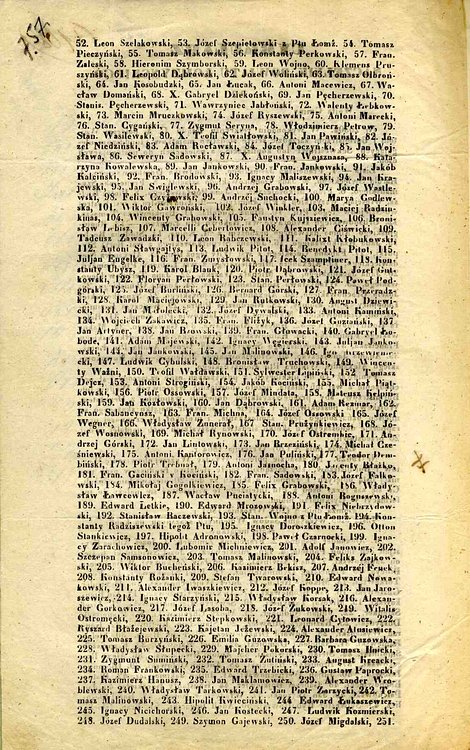 757.
52. Leon Szelakowski, 53. Józef Szepietowski z Ptu Łomż. 54. Tomasz
Pieczyński, 55. Tomasz Makowski, 56. Konstanty Perkowski, 57. Fran.
Zaleski, 58. Hieronim Szymborski, 59. Leon Wojno, 60. Klemens Pru-
szyński, 61. Leopold Dąbrowski, 62. Józef Woliński, 63. Tomasz Olbroń-
ski, 64. Jan Kosobudzki, 65. Jan Łucak, 66. Antoni Macewicz, 67. Wa-
cław Domański, 68. X. Gabryel Działkoński, 69. Jan Pęcherzewski, 70.
Stanis. Pęcherzewski, 71. Wawrzyniec Jabłoński, 72. Walenty Łebkow-
ski, 73. Marcin Mruczkowski, 74. Józef Ryszewski, 75. Antoni Marecki,
76. Stan. Cygański, 77. Zygmut Seryna, 78. Włodzimierz Petrow, 79.
Stan. Wasilewski, 80. X. Teofil Światłowski, 81. Jan Pawiński, 82. Jó-
zef Niedziński, 83. Adam Rocławski, 84. Józef Toczyński, 85. Jan Woj-
sława, 86. Seweryn Sadowski, 87. X. Augustyn Wojsznasa, 88. Kata-
rzyna Kowalewska, 89. Jan Jankowski, 90. Fran. Jankowski, 91. Jakób
Kalciński, 92. Fran. Brodowski, 93. Ignacy Maliszewski, 94. Jan Kra-
jewski, 95. Jan Swiglewski, 96. Andrzej Grabowski, 97. Józef Wasilew-
wski, 98. Felix 99. Andrzej Suchocki, 100. Marya Godlew-
ska, 101. Wiktor Gawroński, 102. Józef Winkler, 103. Maciej Radziu-
kinas, 104. Wincenty Grabowski, 105. Faustyn Kujsiewicz, 106. Broni-
sław Lebisz, 107. Marcelli Ceberłowicz, 108. Alexander Ciświcki, 109.
Tadeusz Zawadzki, 110. Leon Ralczewski, 111. Kalixt Kłobukowski,
112. Antoni Sławgajłys, 113. Ludwik Pitot, 114. Benedykt Pitot, 115.
Julian Engelke, 116. Fran. Zmysłowski, 117. Icek Szampliner, 118. Kon-
stanty Ubysz, 119. Karol Blauk, 120. Piotr Dąbrowski, 121. Józef Gut-
kowski, 122. Floryan Perłowski, 123. Stan. Perłowski, 124. Paweł Pod-
górski, 125. Józef Buciński, 126. Bernard Górski, 127. Fran. Przeradz-
ki, 128. Karol Maciejowski, 129. Jan Rutkowski, 130. August Dzierzę-
cki, 131. Jan Miłołęcki, 132. Józef Dywalski, 133. Antoni Kamiński,
134. Wojciech Zakawicz, 135. Fran. Fliżyk, 136. Józef Guziański, 137.
Jan Artyner, 138. Jan Borowski, 139. Fran. Głowacki, 140. Gabryel Ło-
bude, 141. Adam Majewski, 142. Ignacy Węgierski, 143. Julian Janko-
wski, 144. Jan Jankowski, 145. Jan Malinowski, 146. Ign.
ski, 147. Ludwik Cybulski, 148. Bronisław Truchowski, 149. Wincen-
ty Waźni, 150. Teofil Wałdawski, 151. Sylwester Lipiński, 152. Tomasz
Dejcz, 153. Antoni Strogiński, 154. Jakób Kociński, 155. Michał Piąt-
kowski, 156. Piotr Ossowski, 157. Józef Mindata, 158. Mateusz Kełpiń-
ski, 159. Jan Kozłowski, 160. Jan Dąbrowski, 161. Adam Rezmar, 162.
Fran. Sabancynsz, 163. Fran. Michna, 164. Józef Ossowski 165. Józef
Wegner, 166. Władysław Zunerał, 167. Stan. Prużynkiewicz, 168. Jó-
zef Wosnowski, 169. Michał Rynowski, 170. Józef Ostrembic, 171. An-
drzej Górski, 172. Jan Lintowski, 173. Jan Brzesiński, 174. Michał Cze-
śniewski, 175. Antoni Kantorowicz, 176. Jan Puliński, 177. Teodor Dem-
biński, 178. Piotr Trebnał, 179. Antoni Jasnocha, 180. Błażko,
181. Fran. Gaciński v Kociński, 182. Fran. Sadowski, 183. Józef Falko-
wski, 184. Mikołaj Gogolkiewicz, 185. Felix Grabowski, 186. Włady-
sław Ławcewicz, 187. Wacław Puciatycki, 188. Antoni Roguszewski,
189. Edward Letkie, 190. Edward Mrozowski, 191. Felix Niebrzydow-
ski, 192. Stanisław Raczewski, 193. Stan. Wojno z Ptu Łomż. 194. Kon-
stanty Radziszewski tegoż Ptu, 195. Ignacy Doroszkiewicz, 196. Otton
Stankiewicz, 197. Hipolit Adronowski, 198. Paweł Czarnocki, 199. Ign-
acy Zarachowicz, 200. Lubomir Michniewicz, 201. Adolf Janowicz, 202.
Szczepan Samsonowicz, 203. Tomasz Malinowski, 204. Feliks Zajkow-
ski, 205. Wiktor Bucheński, 206. Kazimierz Bekisz, 207. Andrzej Fruck
208. Konstanty Rożański, 209. Stefan Twarowski, 210. Edward Nowa-
kowski, 211. Alexander Iwaszkiewicz, 212. Józef Koppe, 213. Jan Jaro-
szewicz, 214. Ignacy Starzyński, 215. Władysław Korsak, 216. Alexan-
der Gorkowicz, 217. Józef Lasoba, 218. Józef Żukowski, 219. Witalis
Ostromęcki, 220. Kaźimierz Stępkowski, 221. Leonard Cytowicz, 222.
Ryszard Błażejewski, 223. Kajetan Jeżewski, 224. Alexander Alusiewicz,
225. Tomasz Korzyński, 226. Emilia Guzowska, 227. Barbara Guzowska,
228. Władysław Słupecki, 229. Majcher Pokorski, 230. Tomasz Ilnicki,
231. Zygmunt Sumiński, 232. Tomasz Zutiński, 233. August Kreacki,
234. Roman Frankowski, 235. Edward Trzelicki, 236. Gustaw Paprocki,
237. Kazimierz Hanusz, 238. Jan Maklamowicz, 239. Alexander Wro-
blewski, 240. Władysław Tarkowski, 241. Jan Piotr Zarzycki, 242. To-
masz Malinowski, 243. Hipolit Kwieciński, 244 Edward Łukaszewicz,
245. Ignacy Nicichorski, 246. Jan Kostecki, 247. Ludwik Koźmierski,
248. Józef Dudalski, 249. Szymon Gajewski, 250. Józef Migdalski, 251.